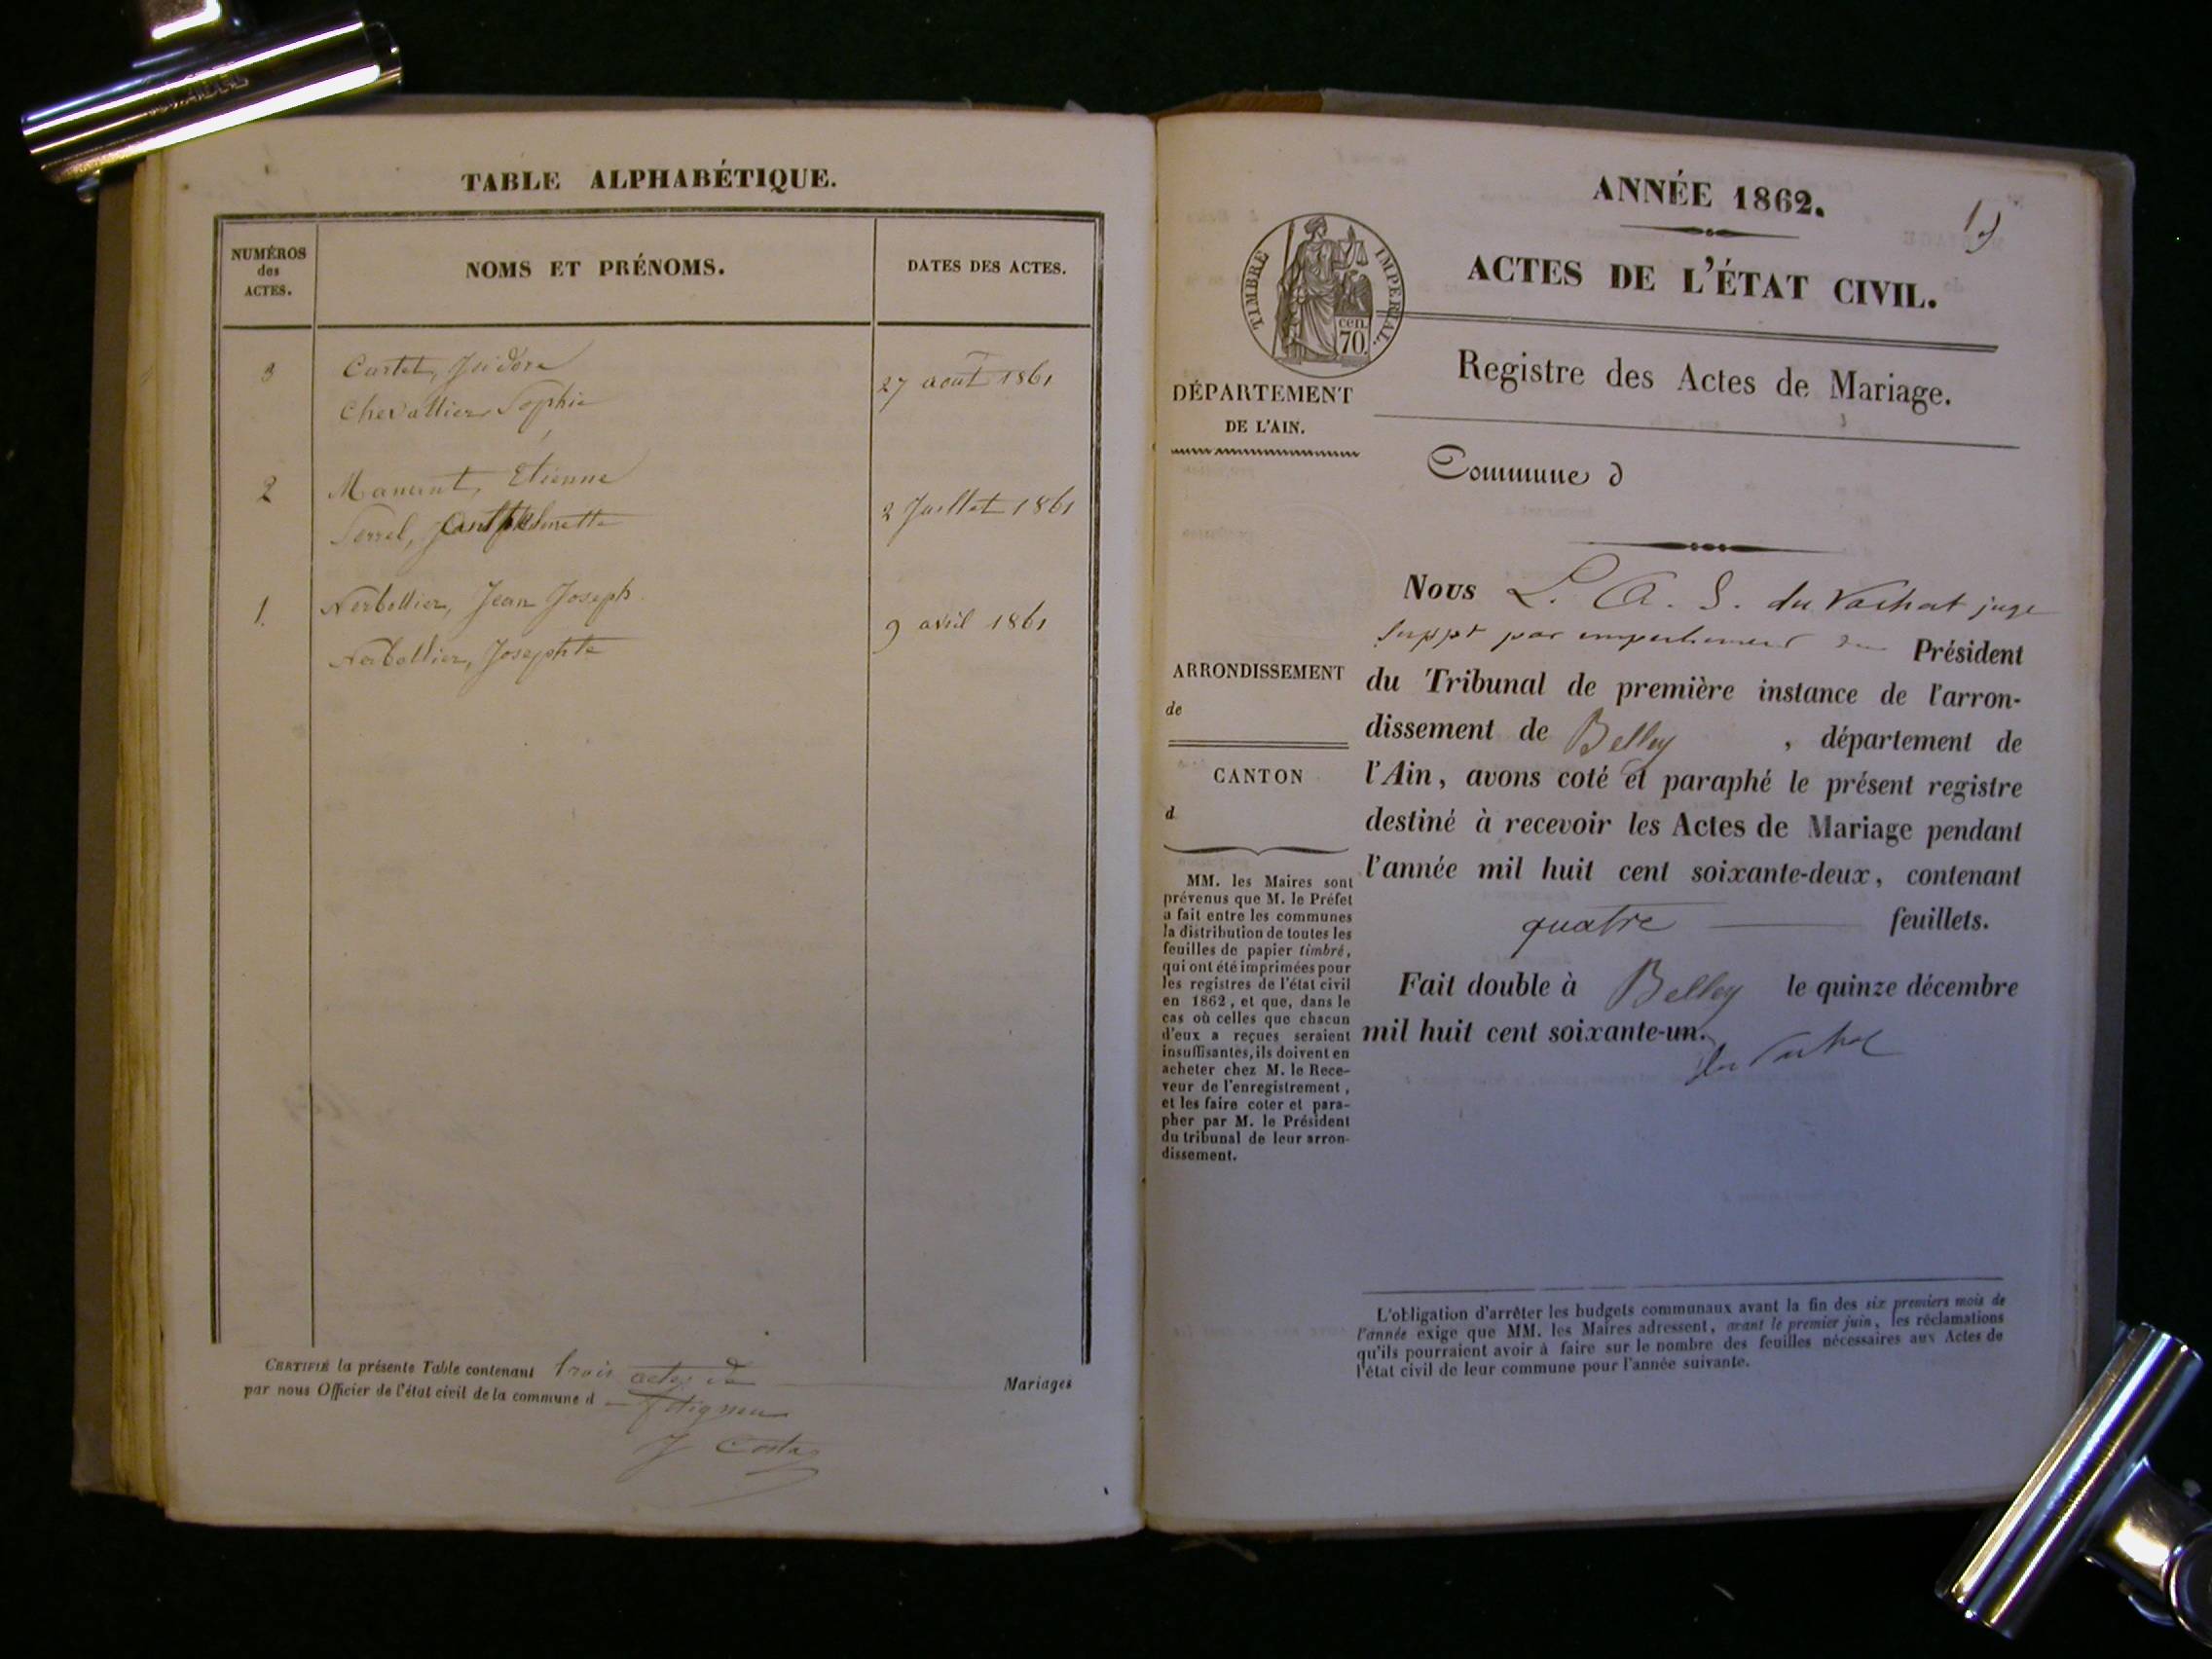 TABLE ALPHABÉTIQUE.
NUMÉROS
des
ACTES.
NOMS ET PRÉNOMS.
DATES DES ACTES.
3 Curtet, Isidore
Chevallier Sophie
27 août 1861
2 Manant, Etienne
Serrel,
2 Juillet 1861
1. Nerbollier, Jean Joseph
Nerbollier, Josephte
9 avril 1861
CERTIFIÉ la présente Table contenant trois actes de Mariages
par nous Officier de l'état civil de la commune d
J Costaz
ANNÉE 1862.
ACTES DE L'ÉTAT CIVIL.
TIMBRE IMPERIAL.
cen.
70.
Registre des Actes de Mariage.
DÉPARTEMENT
DE L'AIN.
Commune d
Nous L. A. S. du Vachat juge
suppt par empechement du Président
du Tribunal de première instance de l'arron-
dissement de Belley, département de
l'Ain, avons coté et paraphé le présent registre
destiné à recevoir les Actes de Mariage pendant
l'année mil huit cent soixante-deux, contenant
quatre feuillets.
Fait double à Belley le quinze décembre
mil huit cent soixante-un.
du Vachat
ARRONDISSEMENT
de
CANTON
d
MM. les Maires sont
prévenus que M. le Préfet
a fait entre les communes
la distribution de toutes les
feuilles de papier timbré,
qui ont été imprimées pour
les registres de l'état civil
en 1862, et que, dans le
cas où celles que chacun
d'eux a reçues seraient
insuffisantes, ils doivent en
acheter chez M. le Rece-
veur de l'enregistrement,
et les faire coter et para-
pher par M. le Président
du tribunal de leur arron-
dissement.
L'obligation d'arrêter les budgets communaux avant la fin des six premiers mois de
l'année exige que MM. les Maires adressent, avant le premier juin, les réclamations
qu'ils pourraient avoir à faire sur le nombre des feuilles nécessaires aux Actes de
l'état civil de leur commune pour l'année suivante.